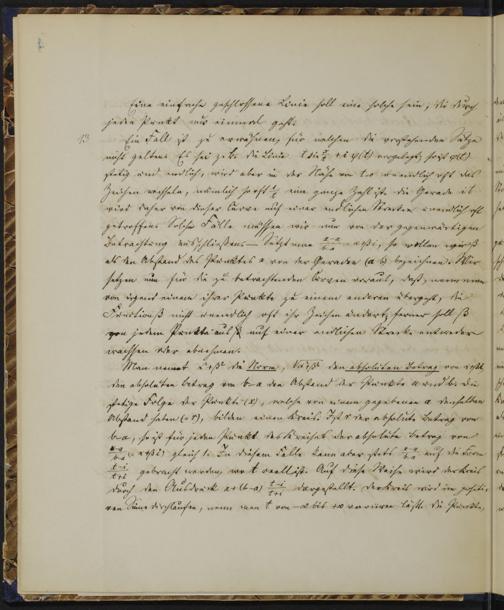 Eine einfache geschlossene Linie soll eine solche sein, die durch
jeden Punkt nur einmal geht.
13 Ein Fall ist zu erwähnen, für welchen die vorstehenden Sätze
nicht gelten. Es sei z.B. die Linie
stetig und endlich, wird aber in der Nähe von t=0 unendlich oft das
Zeichen wechseln, nämlich so oft eine ganze Zahl ist. Die Gerade
wird daher von dieser Curve auf einer endlichen Strecke unendlich oft
getroffen. Solche Fälle müssen wir nun von der gegenwärtigen
Betrachtung ausschliessen. Setzt man so wollen wir
als den Abstand des Punktes von der Geraden (a b) bezeichnen. Wir
setzen nun für die zu betrachtenden Curven voraus, dass, wenn man
von irgend einem ihrer Punkte zu einem anderen übergeht, die
Function nicht unendlich oft ihr Zeichen ändert, ferner soll
von jedem Punkte aus auf einer endlichen Strecke entweder
wachsen oder abnehmen.
Man nennt die Norm, den absoluten Betrag von
den absoluten Betrag von b-a den Abstand der Punkte a und b. Die
stetige Folge der Punkte (x), welche von einem gegebenen a denselben
Abstand haben (=r), bilden einen Kreis. Ist r der absolute Betrag von
b-a, so ist für jeden Punkt des Kreises der absolute Betrag von
gleich 1. In diesem Falle kann aber stets auf die Form
gebracht werden, wo t reell ist. Auf diese Weise wird der Kreis
durch den Ausdruck a+(b-a) dargestellt. Der Kreis wird im positi-
ven Sinne durchlaufen, wenn man t von -∞ bis +∞ variiren lässt. Die Punkte,